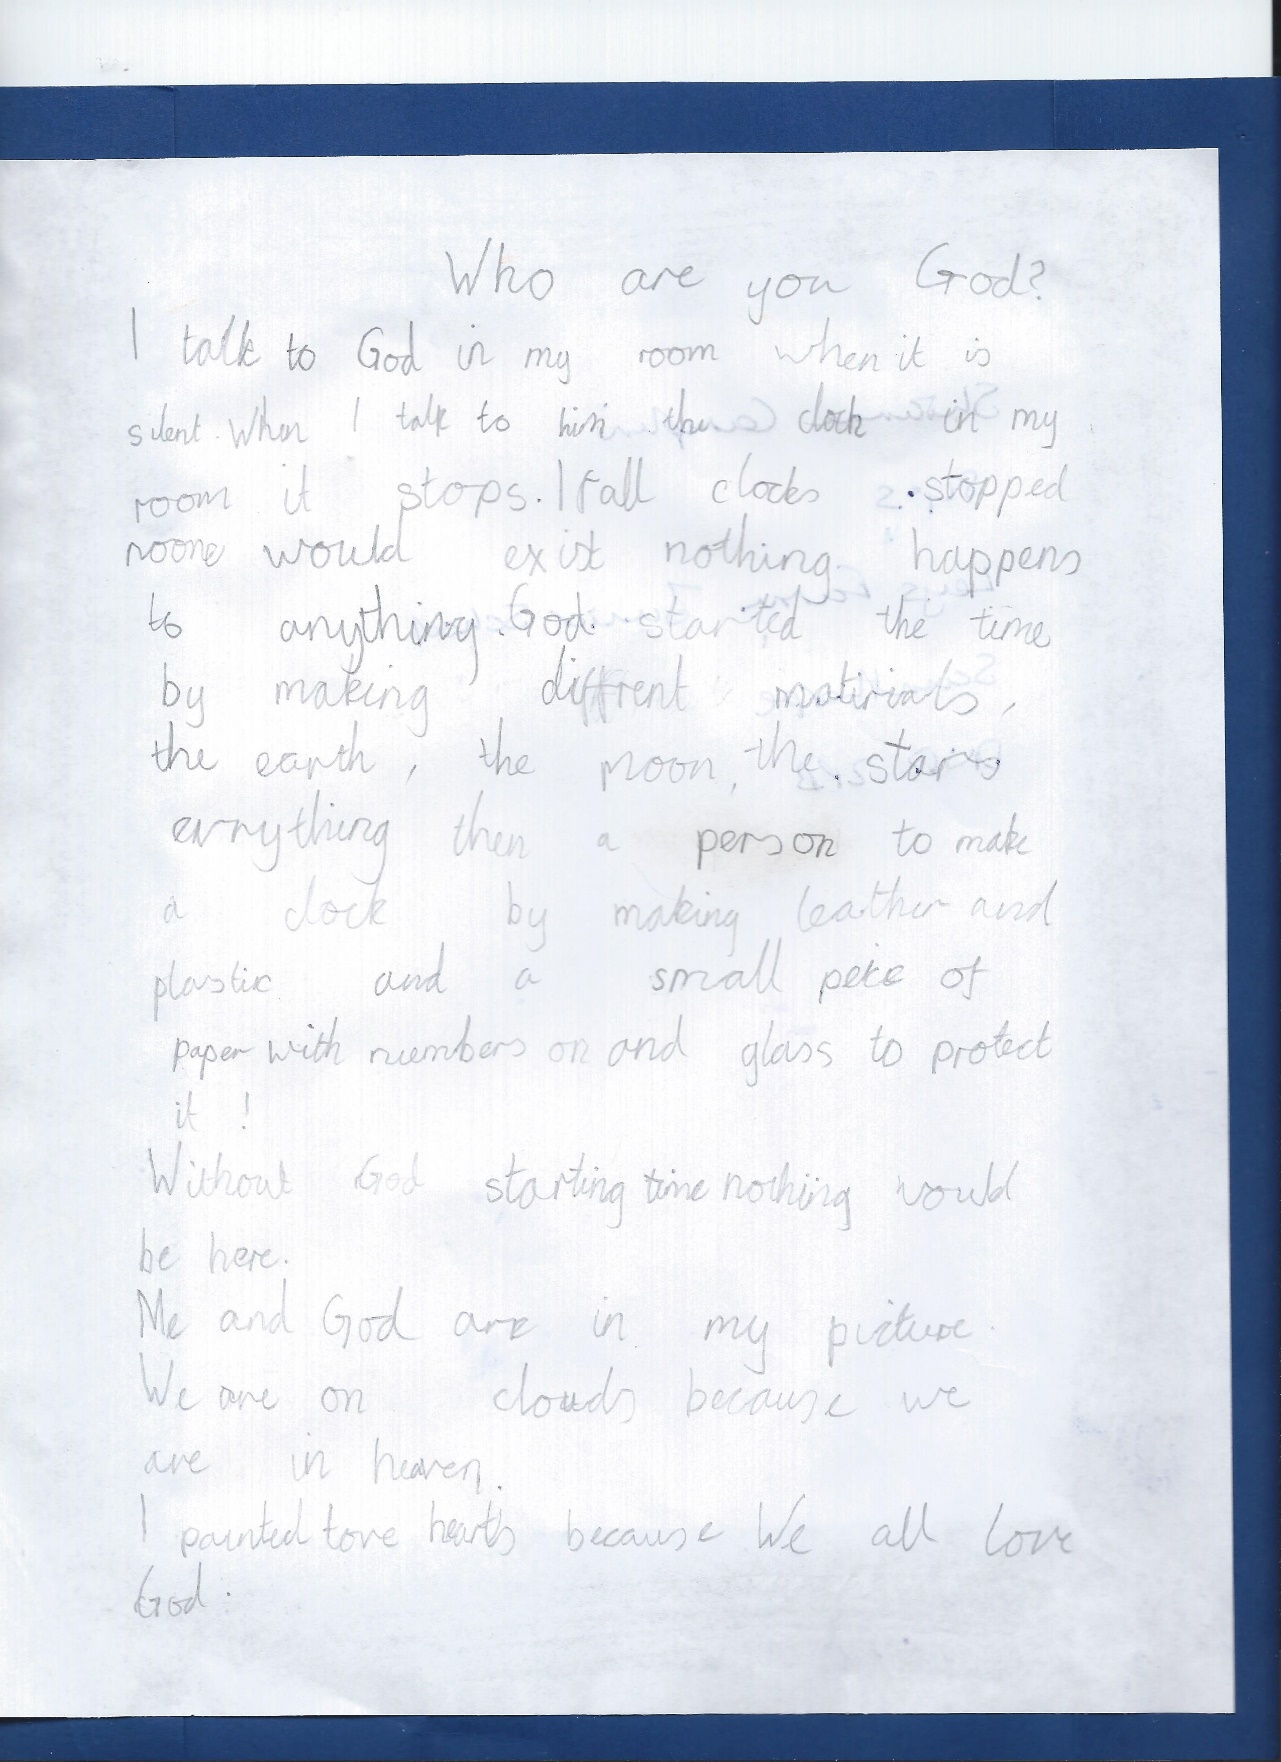 Who are you God?
I talk to God in my room when it is
silent. When I talk to him the clock in my
room it stops. If all clocks stopped
noone would exist nothing happens
to anything. God started the time
by making diffrent matirials,
the earth, the moon, the stars
evrything then a person to make
a clock by making leather and
plastic and a small peice of
paper with numbers on and glass to protect
it !
Without God starting time nothing would
be here.
Me and God are in my picture.
We are on clouds because we
are in heaven.
I painted love hearts because We all love
God.